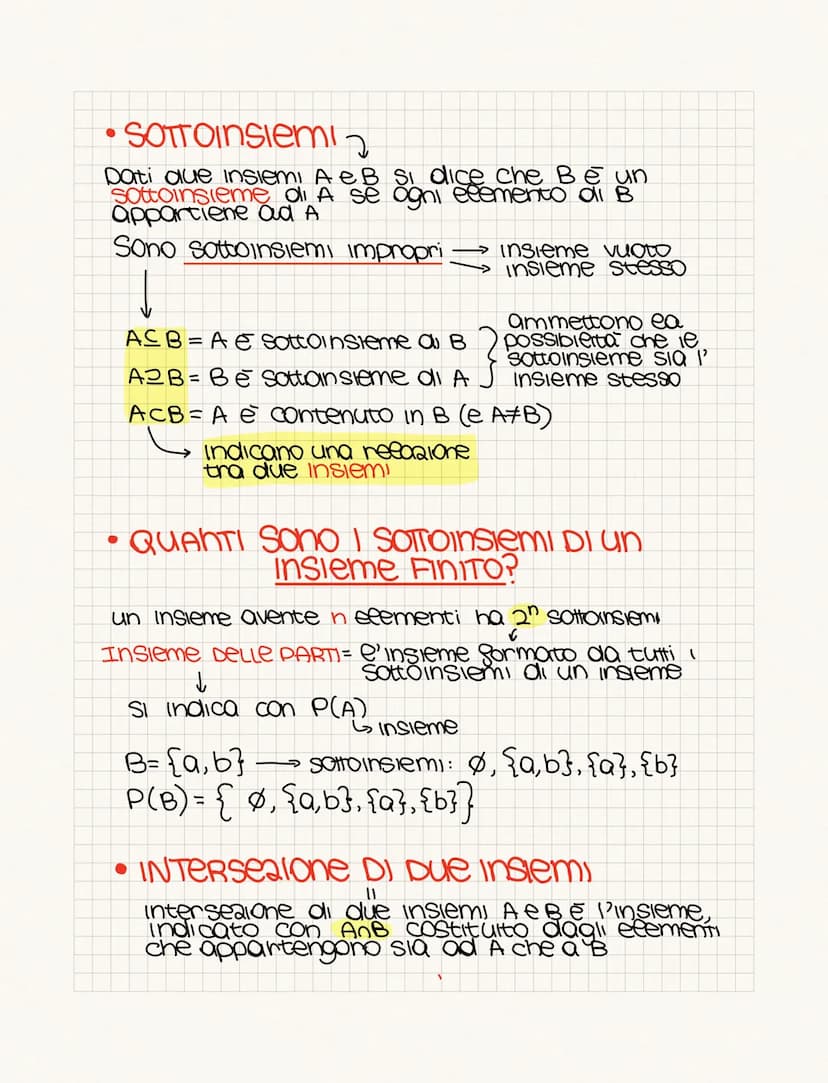 • SOTTOINSIEMI
Dati due insiemi A e B si dice che B è un
sottoinsieme di A se ogni elemento di B
appartiene ad A
Sono sottoinsiemi impropri → insieme vuoto
→ insieme stesso
A⊆B = A è sottoinsieme di B
A⊇B = B è sottoinsieme di A
ammettono la
possibilità che il
sottoinsieme sia l'
insieme stesso
A⊂B = A è contenuto in B (e A≠B)
indicano una relazione
tra due insiemi
• QUANTI SONO I SOTTOINSIEMI DI UN
INSIEME FINITO?
un insieme avente n elementi ha 2ⁿ sottoinsiemi
INSIEME DELLE PARTI = l'insieme formato da tutti i
sottoinsiemi di un insieme
si indica con P(A)
↳ insieme
B={a,b} → sottoinsiemi: ∅,{a,b},{a},{b}
P(B)={ ∅,{a,b},{a},{b}}
• INTERSEZIONE DI DUE INSIEMI
intersezione di due insiemi A e B è l'insieme,
indicato con A∩B costituito dagli elementi
che appartengono sia ad A che a B